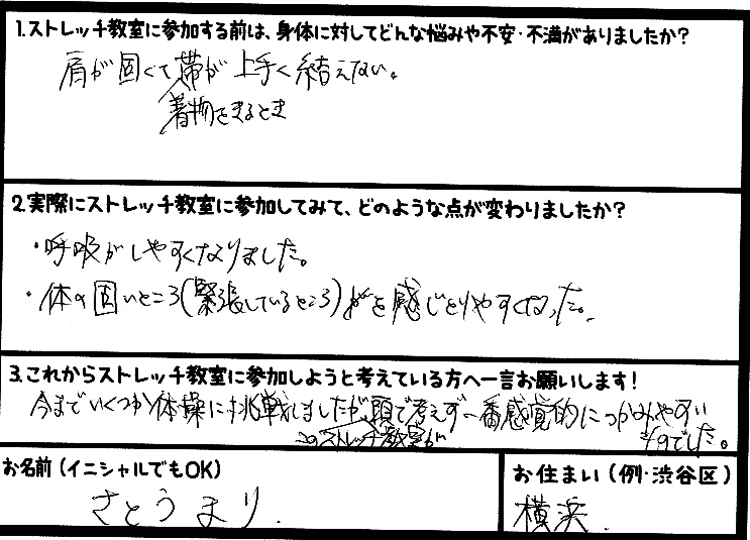 1.ストレッチ教室に参加する前は、身体に対してどんな悩みや不安・不満がありましたか?
肩が固くて帯が上手く結えない。
着物をきるとき
2.実際にストレッチ教室に参加してみて、どのような点が変わりましたか?
・呼吸がしやすくなりました。
・体の固いところ(緊張しているところ)を感じとりやすくなった。
3.これからストレッチ教室に参加しようと考えている方へ一言お願いします!
今までいくつか体操に挑戦しましたが、頭で考えず一番感覚的につかみやすい
このストレッチ教室が
ものでした。
お名前(イニシャルでもOK)
さとうまり.
お住まい(例・渋谷区)
横浜.